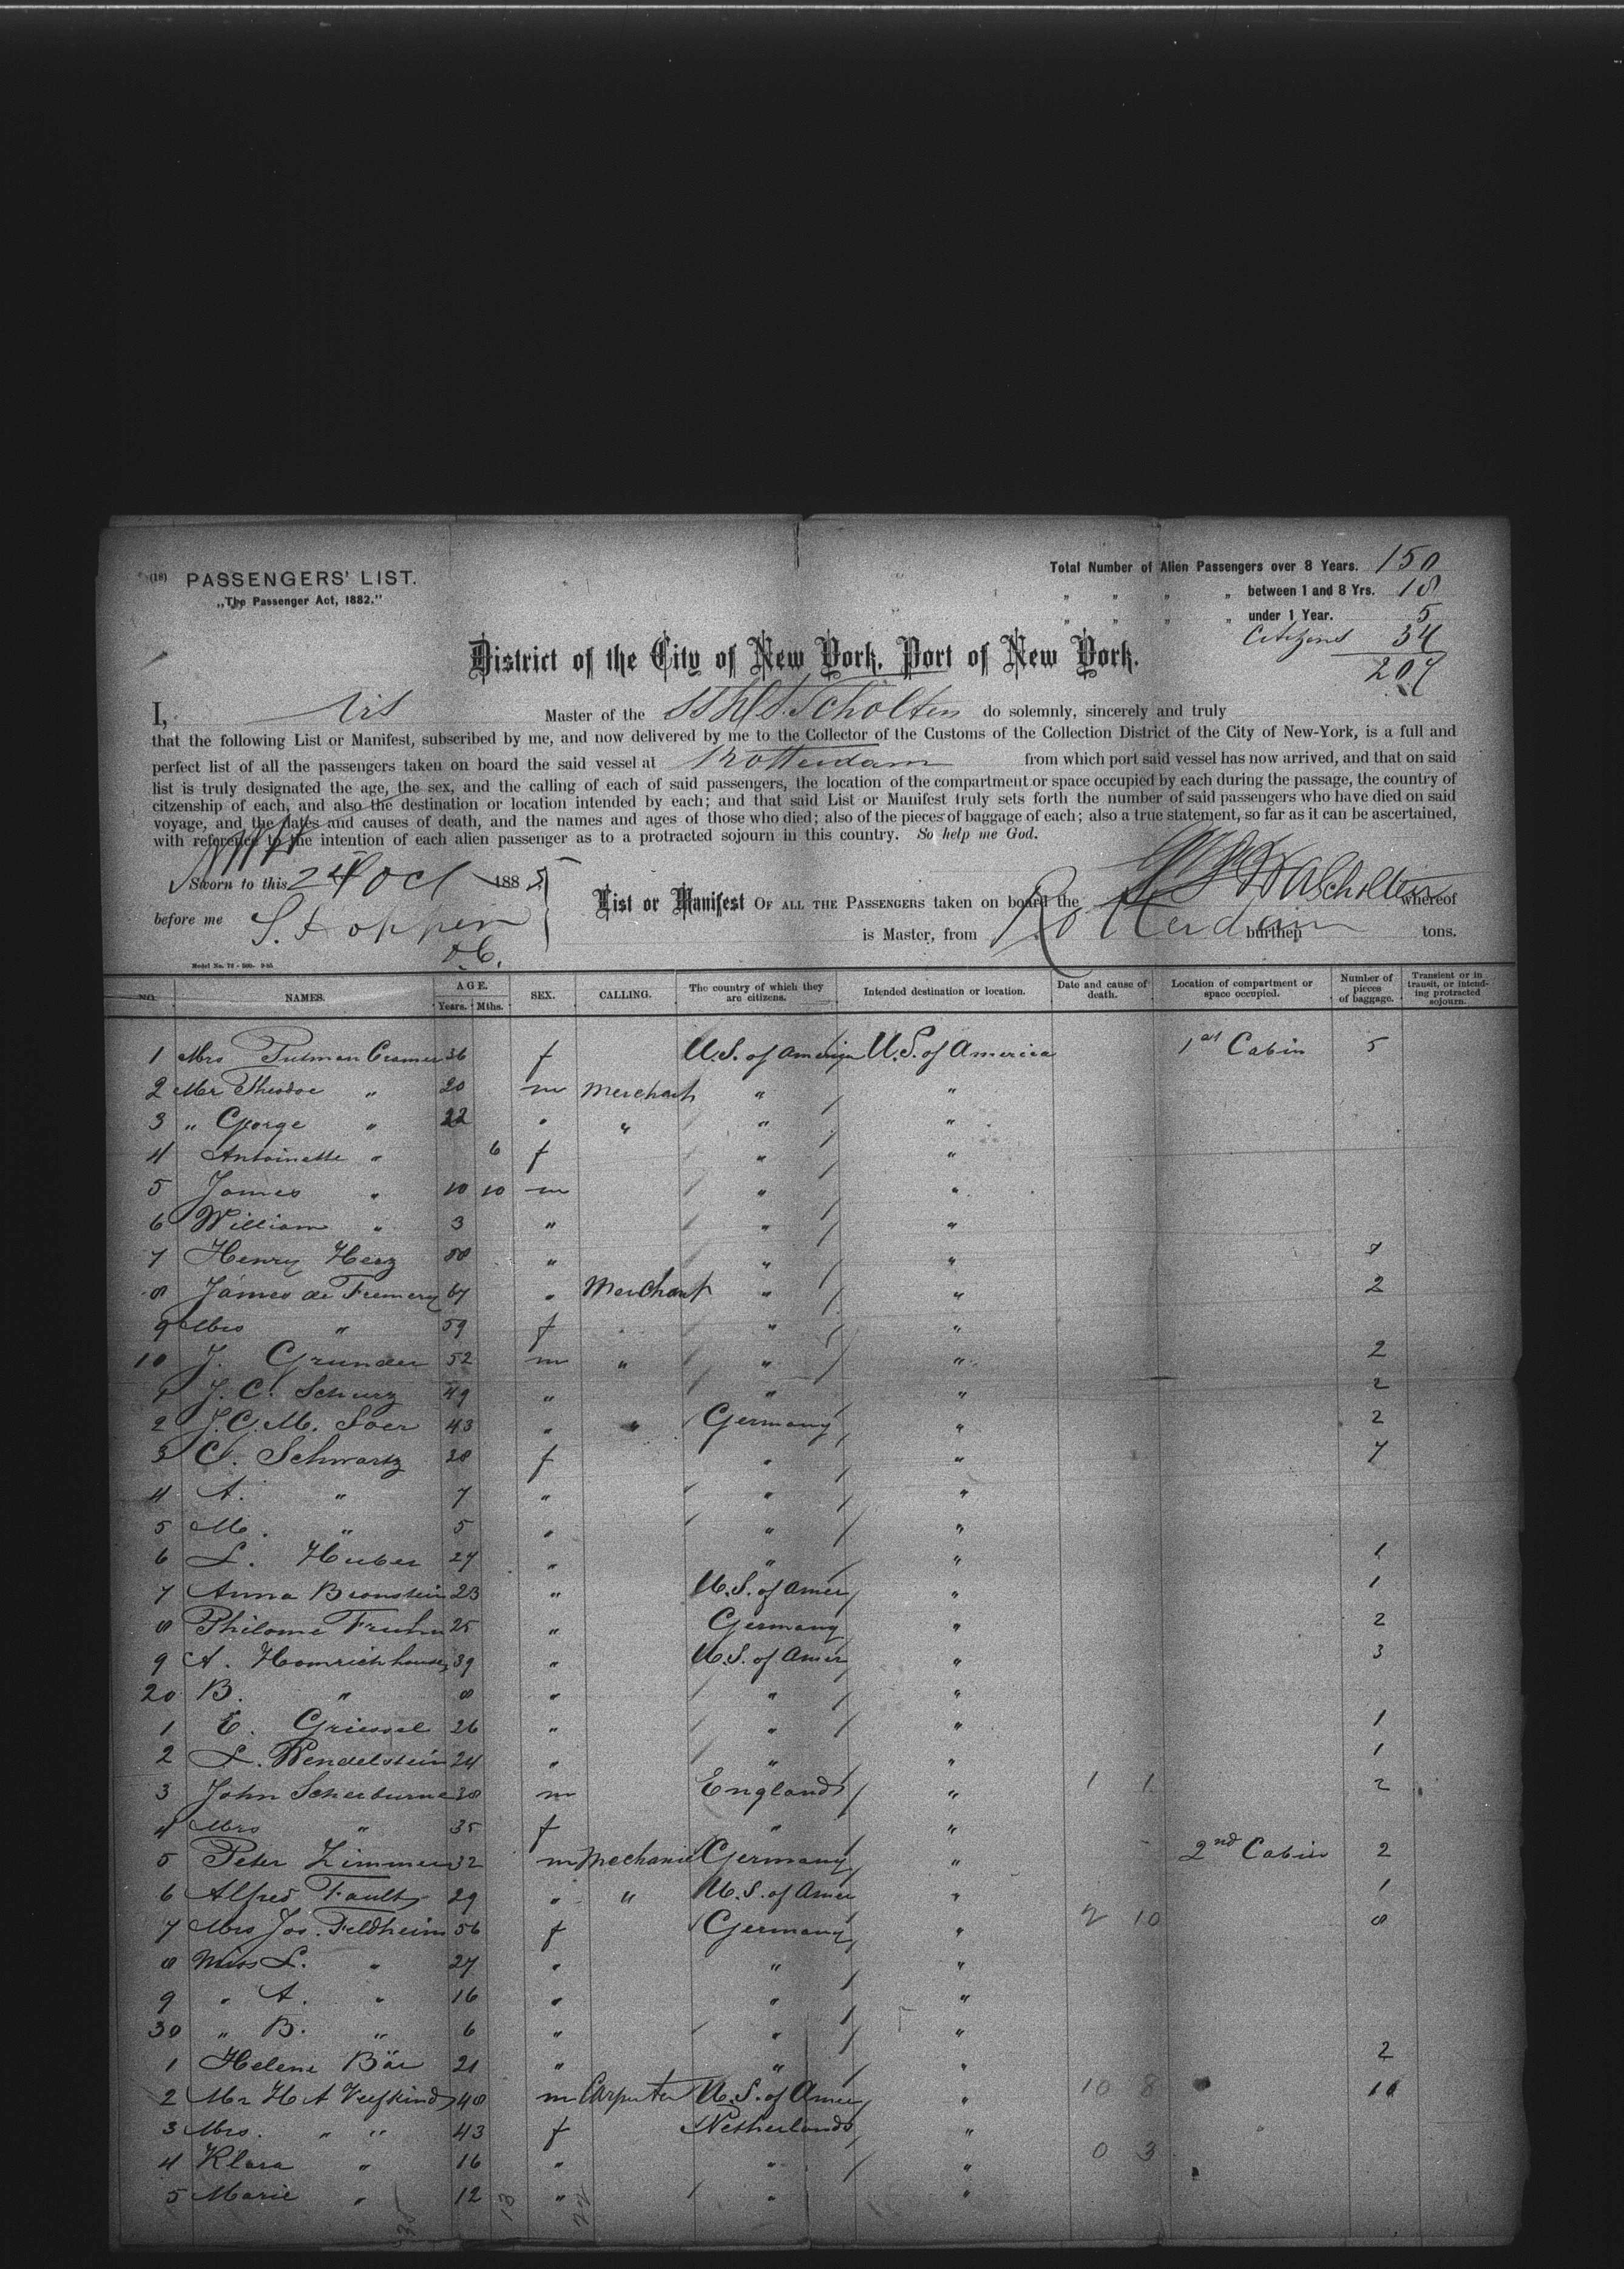 (18) PASSENGERS' LIST.
„The Passenger Act, 1882."
Total Number of Alien Passengers over 8 Years. 150
„ „ „ „ between 1 and 8 Yrs. 18
„ „ „ „ under 1 Year. 5
Citizens 34
207
District of the City of New York, Port of New York.
I, Master of the SS Scholten do solemnly, sincerely and truly
that the following List or Manifest, subscribed by me, and now delivered by me to the Collector of the Customs of the Collection District of the City of New-York, is a full and
perfect list of all the passengers taken on board the said vessel at Rotterdam from which port said vessel has now arrived, and that on said
list is truly designated the age, the sex, and the calling of each of said passengers, the location of the compartment or space occupied by each during the passage, the country of
citzenship of each, and also the destination or location intended by each; and that said List or Manifest truly sets forth the number of said passengers who have died on said
voyage, and the dates and causes of death, and the names and ages of those who died; also of the pieces of baggage of each; also a true statement, so far as it can be ascertained,
with reference to the intention of each alien passenger as to a protracted sojourn in this country. So help me God.
Sworn to this 24 Oct 1885
before me
List or Manifest OF ALL THE PASSENGERS taken on board the Scholten whereof
is Master, from Rotterdam burthen tons.
NO. NAMES. AGE. Years. Mths. SEX. CALLING. The country of which they are citizens. Intended destination or location. Date and cause of death. Location of compartment or space occupied. Number of pieces of baggage. Transient or in transit, or intending protracted sojourn.
1 Mrs Putman Cramer 36 f U.S. of America U.S. of America 1st Cabin 5
2 Mr Theodoe „ 20 m Merchant „ „
3 „ George „ 22 „ „ „ „
4 Antoinette „ 6 f „ „
5 James „ 10 10 m „ „
6 William „ 3 „ „ „
7 Henry Herz 58 „ „ „
8 James de Fremery 67 „ Merchant „ „ 2
9 Mrs „ 59 f „ „
10 J. Grunder 52 m „ „ „ 2
1 J. C. Schurz 49 „ „ „ 2
2 J.C.M. Soer 43 „ „ Germany „ 2
3 C. Schwartz 28 f „ „ 7
4 A. „ 7 „ „ „
5 M. „ 5 „ „ „
6 L. Huber 27 „ „ „ 1
7 Anna Bronstein 23 „ U.S. of Amer „ 1
8 Philome Fruhn 25 „ Germany „ 2
9 A. Homrichhouse 39 „ U.S. of Amer „ 3
20 B. „ 8 „ „ „
1 E. Griessel 26 „ „ „ 1
2 L. Wendelstein 24 „ „ „ 1
3 John Scherburne 38 m England „ 1 1 2
4 Mrs „ 35 f „ „
5 Peter Zimmer 32 m Mechanic Germany „ 2nd Cabin 2
6 Alfred Faulty 29 „ „ U.S. of Amer „ 1
7 Mrs Jos. Feldheim 56 f Germany „ 2 10 8
8 Miss L. „ 27 „ „ „
9 „ A. „ 16 „ „ „
30 „ B. „ 6 „ „ „
1 Helene Bär 21 „ „ „ 2
2 Mr H A Veefkind 48 m Carpenter U.S. of Amer „ 10 8
3 Mrs. „ „ 43 f Netherlands „
4 Klara „ 16 „ „ „ 0 3
5 Marie „ 12 „ „ „